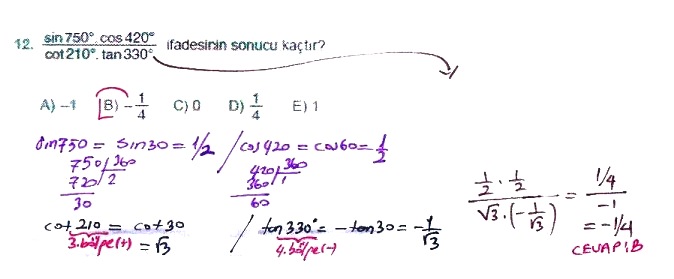 12. sin 750° . cos 420° / cot 210° . tan 330° ifadesinin sonucu kaçtır?
A) –1 B) –1/4 C) 0 D) 1/4 E) 1
sin750 = sin30 = 1/2 / cos420 = cos60 = 1/2
750 | 360
720 | 2
30
420 | 360
360 | 1
60
cot 210 = cot30
3. bölge(+) = √3
/ tan 330° = -tan30 = -1/√3
4. bölge(-)
1/2 . 1/2 / √3 . (-1/√3) = 1/4 / -1
= -1/4
CEVAP: B